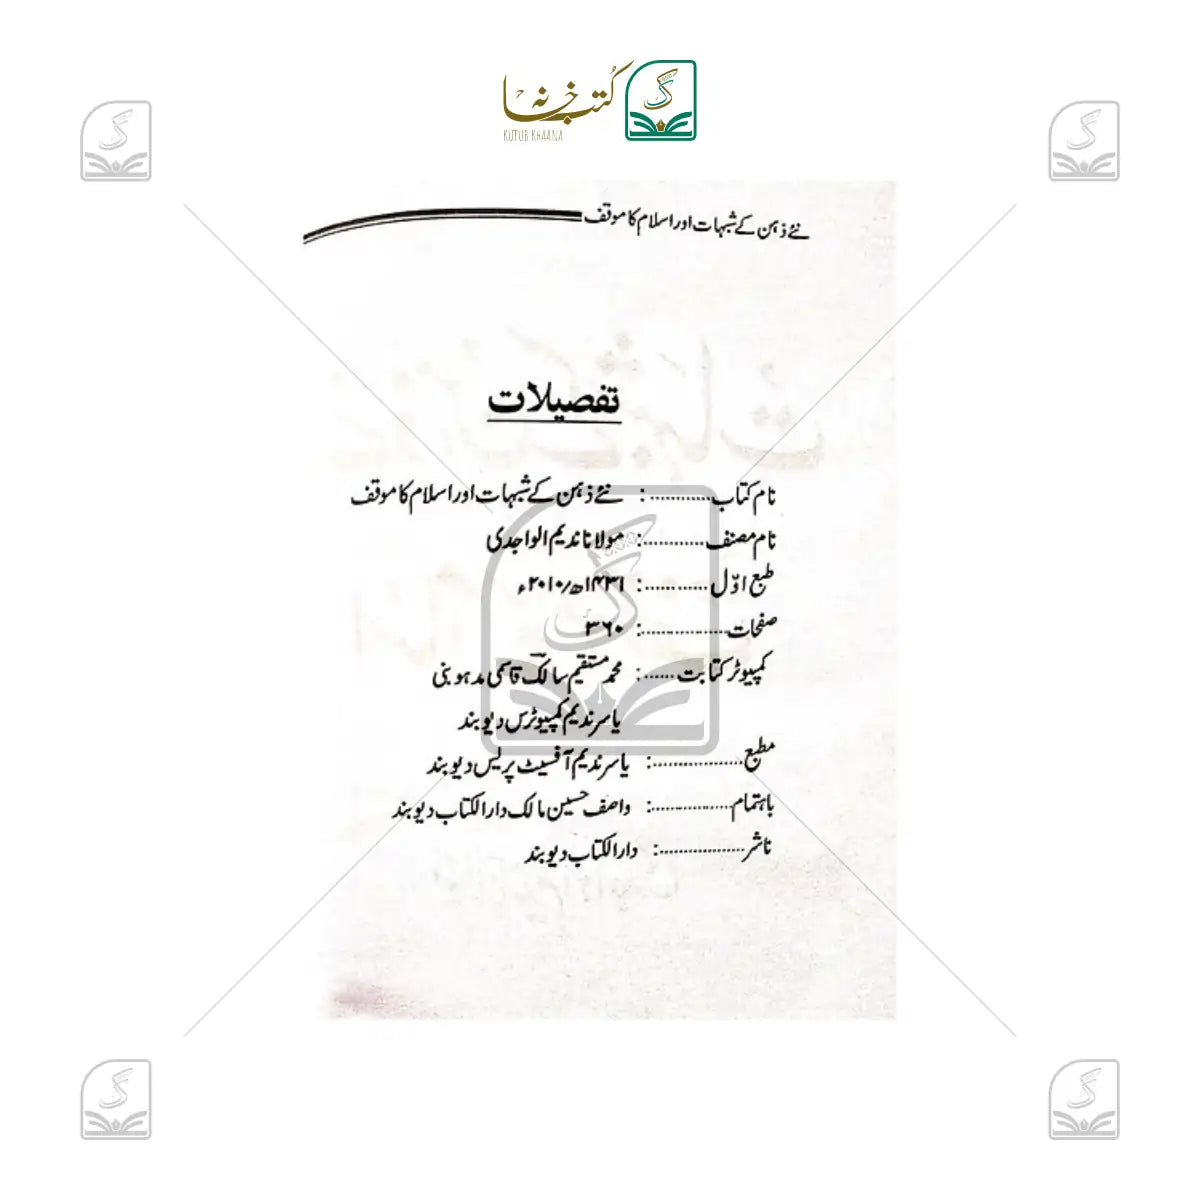 کُتب خانہ
KUTUB KHAANA
نئے ذہن کے شبہات اور اسلام کا موقف
تفصیلات
نام کتاب............: نئے ذہن کے شبہات اور اسلام کا موقف
نام مصنف............: مولانا ندیم الواجدی
طبع اوّل............: ۱۴۳۱ھ/۲۰۱۰ء
صفحات.................: ۳۶۰
کمپیوٹر کتابت......: محمد مستقیم سالک قاسمی مدہوبنی
یاسر ندیم کمپیوٹرس دیوبند
مطبع..................: یاسر ندیم آفسیٹ پریس دیوبند
باہتمام................: واصف حسین مالک دارالکتاب دیوبند
ناشر..................: دارالکتاب دیوبند